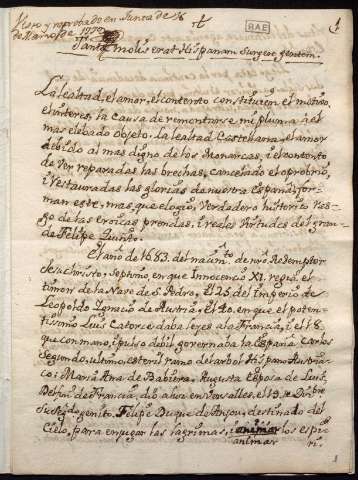 Visto y reprobado en Junta de 26
de Marzo de 1779
RAE
1
Tantæ molis erat Hispanam surgere gentem.
La lealtad, el amor, el contento constituien el motivo,
el interes, la causa de remontarse mi pluma à el
mas elebado objeto. La lealtad Castellana, el amor
debido al mas digno de los Monarcas, i el contento
de ver reparadas las brechas, cancelado el oprobrio,
i restauradas las glorias de nuestra España, for-
man este, mas que elogio, verdadero historico ras-
go de las eroicas prendas, i reales virtudes del gran-
de Felipe Quinto.
El año de 1683. del nacim.to de nr̃o Redemptor
Jesuchristo, septimo, en que Innocencio XI. regia el
timon de la Nave de S. Pedro, el 25. del imperio de
Leopoldo Ignacio de Austria, el 40. en que el poten-
tissimo Luis Catorce daba leyes a la Francia, i el 18.
que con mano, i pulso debil governaba la España Carlos
Segundo, ultimo esteril ramo del arbol Hispano Austria-
co: Maria Ana de Babiera, Augusta Esposa de Luis,
Delfin de Francia, diò à luz en Versalles, el 19. de Dbr̃e
su Segdogenito, Felipe Duque de Anjou, destinado del
Cielo, para enjugar las lagrimas, i animar los espiri-
animar
1